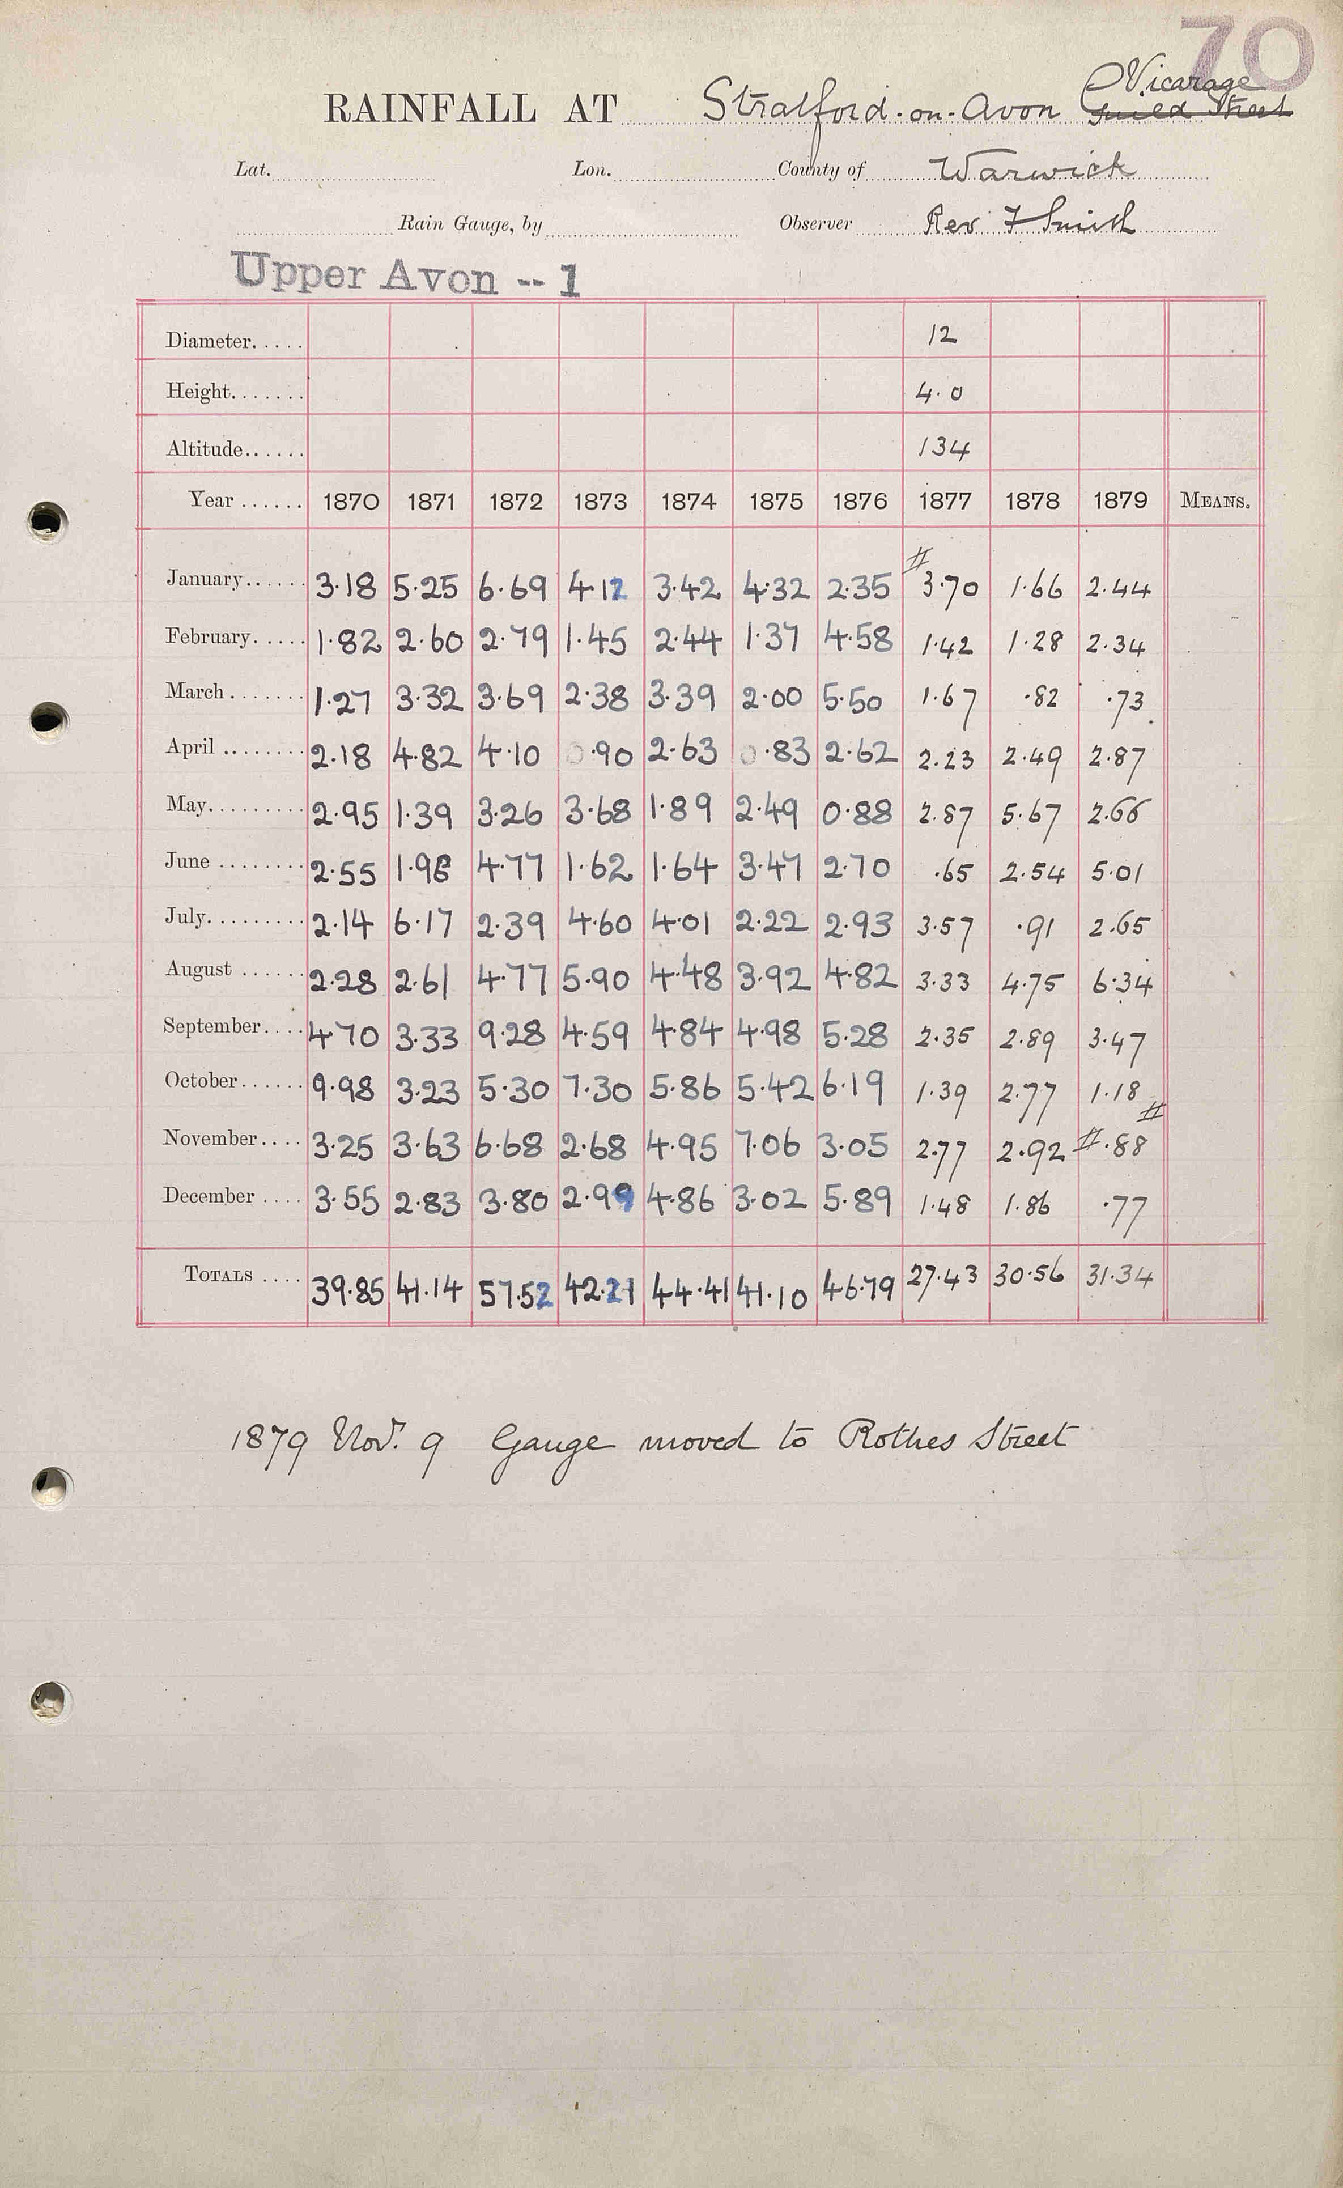 70
RAINFALL AT Stratford-on-Avon Vicarage
Guild Street
Lat. Lon. County of Warwick
Rain Gauge, by Observer Rev. F Smith
Upper Avon -- 1
Diameter..... 12
Height....... 4.0
Altitude...... 134
Year ...... 1870 1871 1872 1873 1874 1875 1876 1877 1878 1879 MEANS.
January...... 3.18 5.25 6.69 4.12 3.42 4.32 2.35 # 3.70 1.66 2.44
February..... 1.82 2.60 2.79 1.45 2.44 1.37 4.58 1.42 1.28 2.34
March....... 1.27 3.32 3.69 2.38 3.39 2.00 5.50 1.67 .82 .73
April ........ 2.18 4.82 4.10 0.90 2.63 0.83 2.62 2.23 2.49 2.87
May......... 2.95 1.39 3.26 3.68 1.89 2.49 0.88 2.87 5.67 2.66
June ........ 2.55 1.96 4.77 1.62 1.64 3.47 2.70 .65 2.54 5.01
July......... 2.14 6.17 2.39 4.60 4.01 2.22 2.93 3.57 .91 2.65
August ...... 2.28 2.61 4.77 5.90 4.48 3.92 4.82 3.33 4.75 6.34
September.... 4.70 3.33 9.28 4.59 4.84 4.98 5.28 2.35 2.89 3.47
October...... 9.98 3.23 5.30 7.30 5.86 5.42 6.19 1.39 2.77 1.18 #
November.... 3.25 3.63 6.68 2.68 4.95 7.06 3.05 2.77 2.92 # .88
December .... 3.55 2.83 3.80 2.99 4.86 3.02 5.89 1.48 1.86 .77
TOTALS .... 39.85 41.14 57.52 42.21 44.41 41.10 46.79 27.43 30.56 31.34
1879 Nov. 9 Gauge moved to Rothes Street